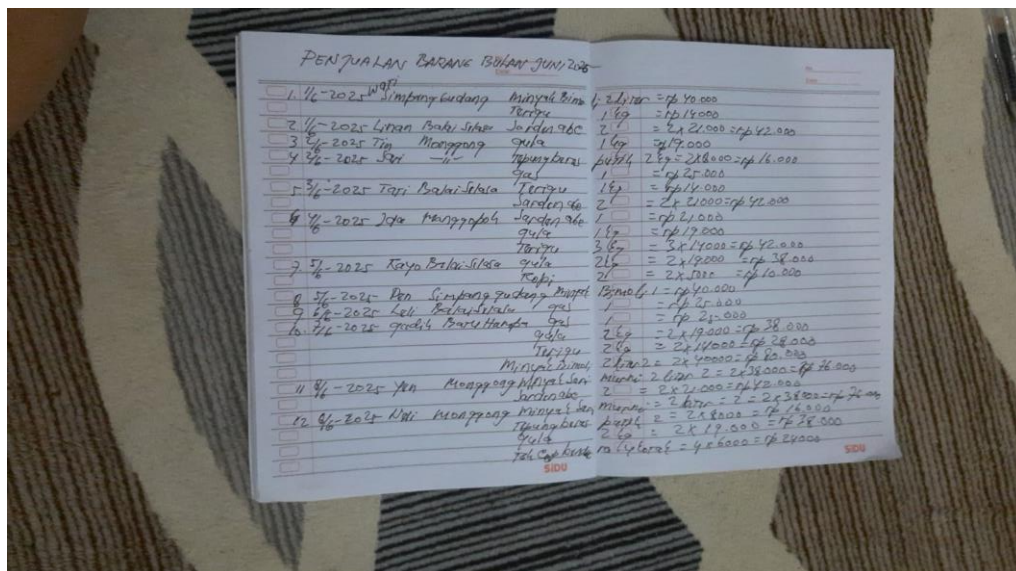 PENJUALAN BARANG BULAN JUNI 2025
1. 1/6-2025 Wati Simpang Gudang Minyak Bimoli 2 liter = Rp 40.000
Terigu 1 kg = Rp 14000
2. 1/6-2025 Linan Balai Selasa Sarden abc 2 = 2 x 21.000 = Rp 42.000
3 2/6-2025 Tin Monggong gula 1 kg = Rp 19.000
4 2/6-2025 Sari -"- Tepung beras putih 2 kg = 2x8000 = Rp 16.000
gas 1 = Rp 25.000
5 3/6-2025 Tari Balai Selasa Terigu 1 kg = Rp 14.000
Sarden abc 2 = 2 x 21000 = Rp 42.000
6 4/6-2025 Manggopoh Sarden abc 1 = Rp 21.000
gula 1 kg = Rp 19000
Terigu 3 kg = 3 x 14000 = Rp 42.000
7 5/6-2025 Kayo Balai Selasa gula 2 kg = 2 x 19.000 = Rp 38.000
Kopi 2 = 2 x 5000 = Rp 10.000
8 5/6-2025 Pen Simpang gudang Minyak Bimoli 1 = Rp 40.000
9 6/6-2025 Leli Balai Selasa gas 1 = Rp 25.000
10. 7/6-2025 Baru gas 1 = Rp 25.000
gula 2 kg = 2 x 19.000 = Rp 38.000
Terigu 2 kg = 2 x 14000 = Rp 28.000
Minyak Bimoli 2 liter 2 = 2 x 40000 = Rp 80.000
11 8/6-2025 Yen Monggong Minyak Sari Murni 2 liter 2 = 2x38000 = Rp 76.000
Sarden abc 2 = 2 x 21.000 = Rp 42.000
12 8/6-2025 Monggong Minyak Sari Murni = 2 liter = 2 = 2x38000 = Rp 76.000
Tepung beras putih 2 = 2x8000 = Rp 16.000
gula 2 kg = 2 x 19.000 = Rp 38.000
Teh Cap 4 kotak = 4 x 6000 = Rp 24000
SIDU SIDU